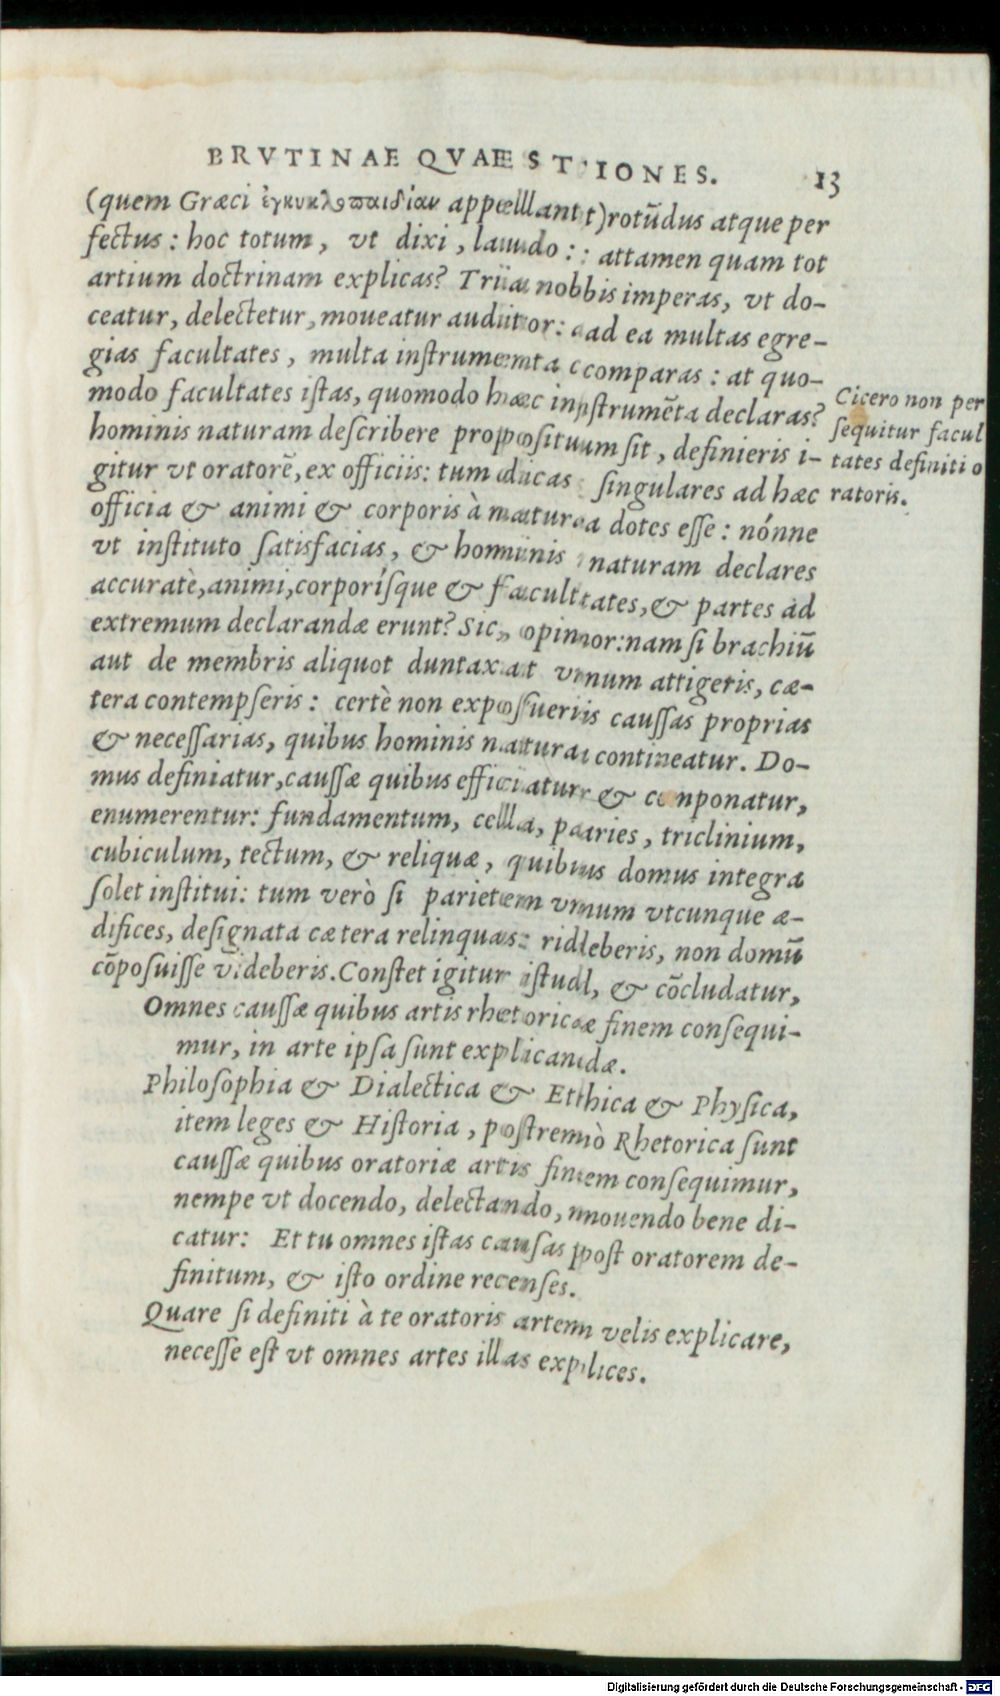 BRVTINAE QVAESTIONES. 13
(quem Græci ἐγκυκλοπαιδίαν appellant) rotūdus atque per
fectus: hoc totum, vt dixi, laudo: attamen quam tot
artium doctrinam explicas? Tria nobis imperas, vt do-
ceatur, delectetur, moueatur auditor: ad ea multas egre-
gias facultates, multa instrumenta comparas: at quo-
modo facultates istas, quomodo hæc instrumēta declaras?
hominis naturam describere propositum sit, definieris i-
gitur vt oratorē, ex officiis: tum dicas singulares ad hæc
officia & animi & corporis à natura dotes esse: nónne
vt instituto satisfacias, & hominis naturam declares
accuratè, animi, corporísque & facultates, & partes ad
extremum declarandæ erunt? Sic, opinor: nam si brachiū
aut de membris aliquot duntaxat vnum attigeris, cæ-
tera contempseris: certè non exposueris caussas proprias
& necessarias, quibus hominis natura contineatur. Do-
mus definiatur, caussæ quibus efficiatur & componatur,
enumerentur: fundamentum, cella, paries, triclinium,
cubiculum, tectum, & reliquæ, quibus domus integra
solet institui: tum verò si parietem vnum vtcunque æ-
difices, designata cætera relinquas: rideberis, non domū
cōposuisse videberis. Constet igitur istud, & cōcludatur,
Omnes caussæ quibus artis rhetoricæ finem consequi-
mur, in arte ipsa sunt explicandæ.
Philosophia & Dialectica & Ethica & Physica,
item leges & Historia, postremò Rhetorica sunt
caussæ quibus oratoriæ artis finem consequimur,
nempe vt docendo, delectando, mouendo bene di-
catur: Et tu omnes istas causas post oratorem de-
finitum, & isto ordine recenses.
Quare si definiti à te oratoris artem velis explicare,
necesse est vt omnes artes illas explices.
Cicero non per
sequitur facul
tates definiti o
ratoris.
Digitalisierung gefördert durch die Deutsche Forschungsgemeinschaft - DFG